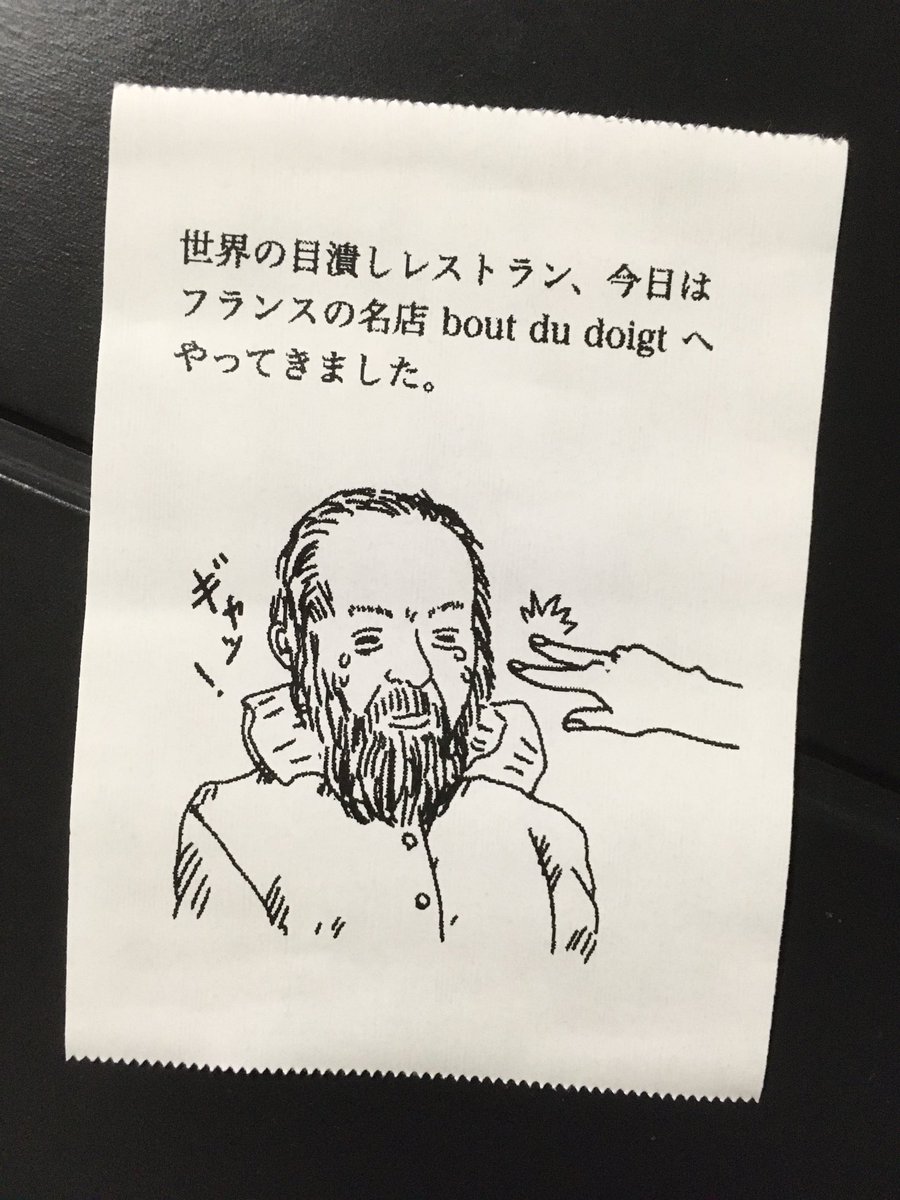 世界の目潰しレストラン、今日は
フランスの名店 bout du doigt へ
やってきました。
ギャッー！